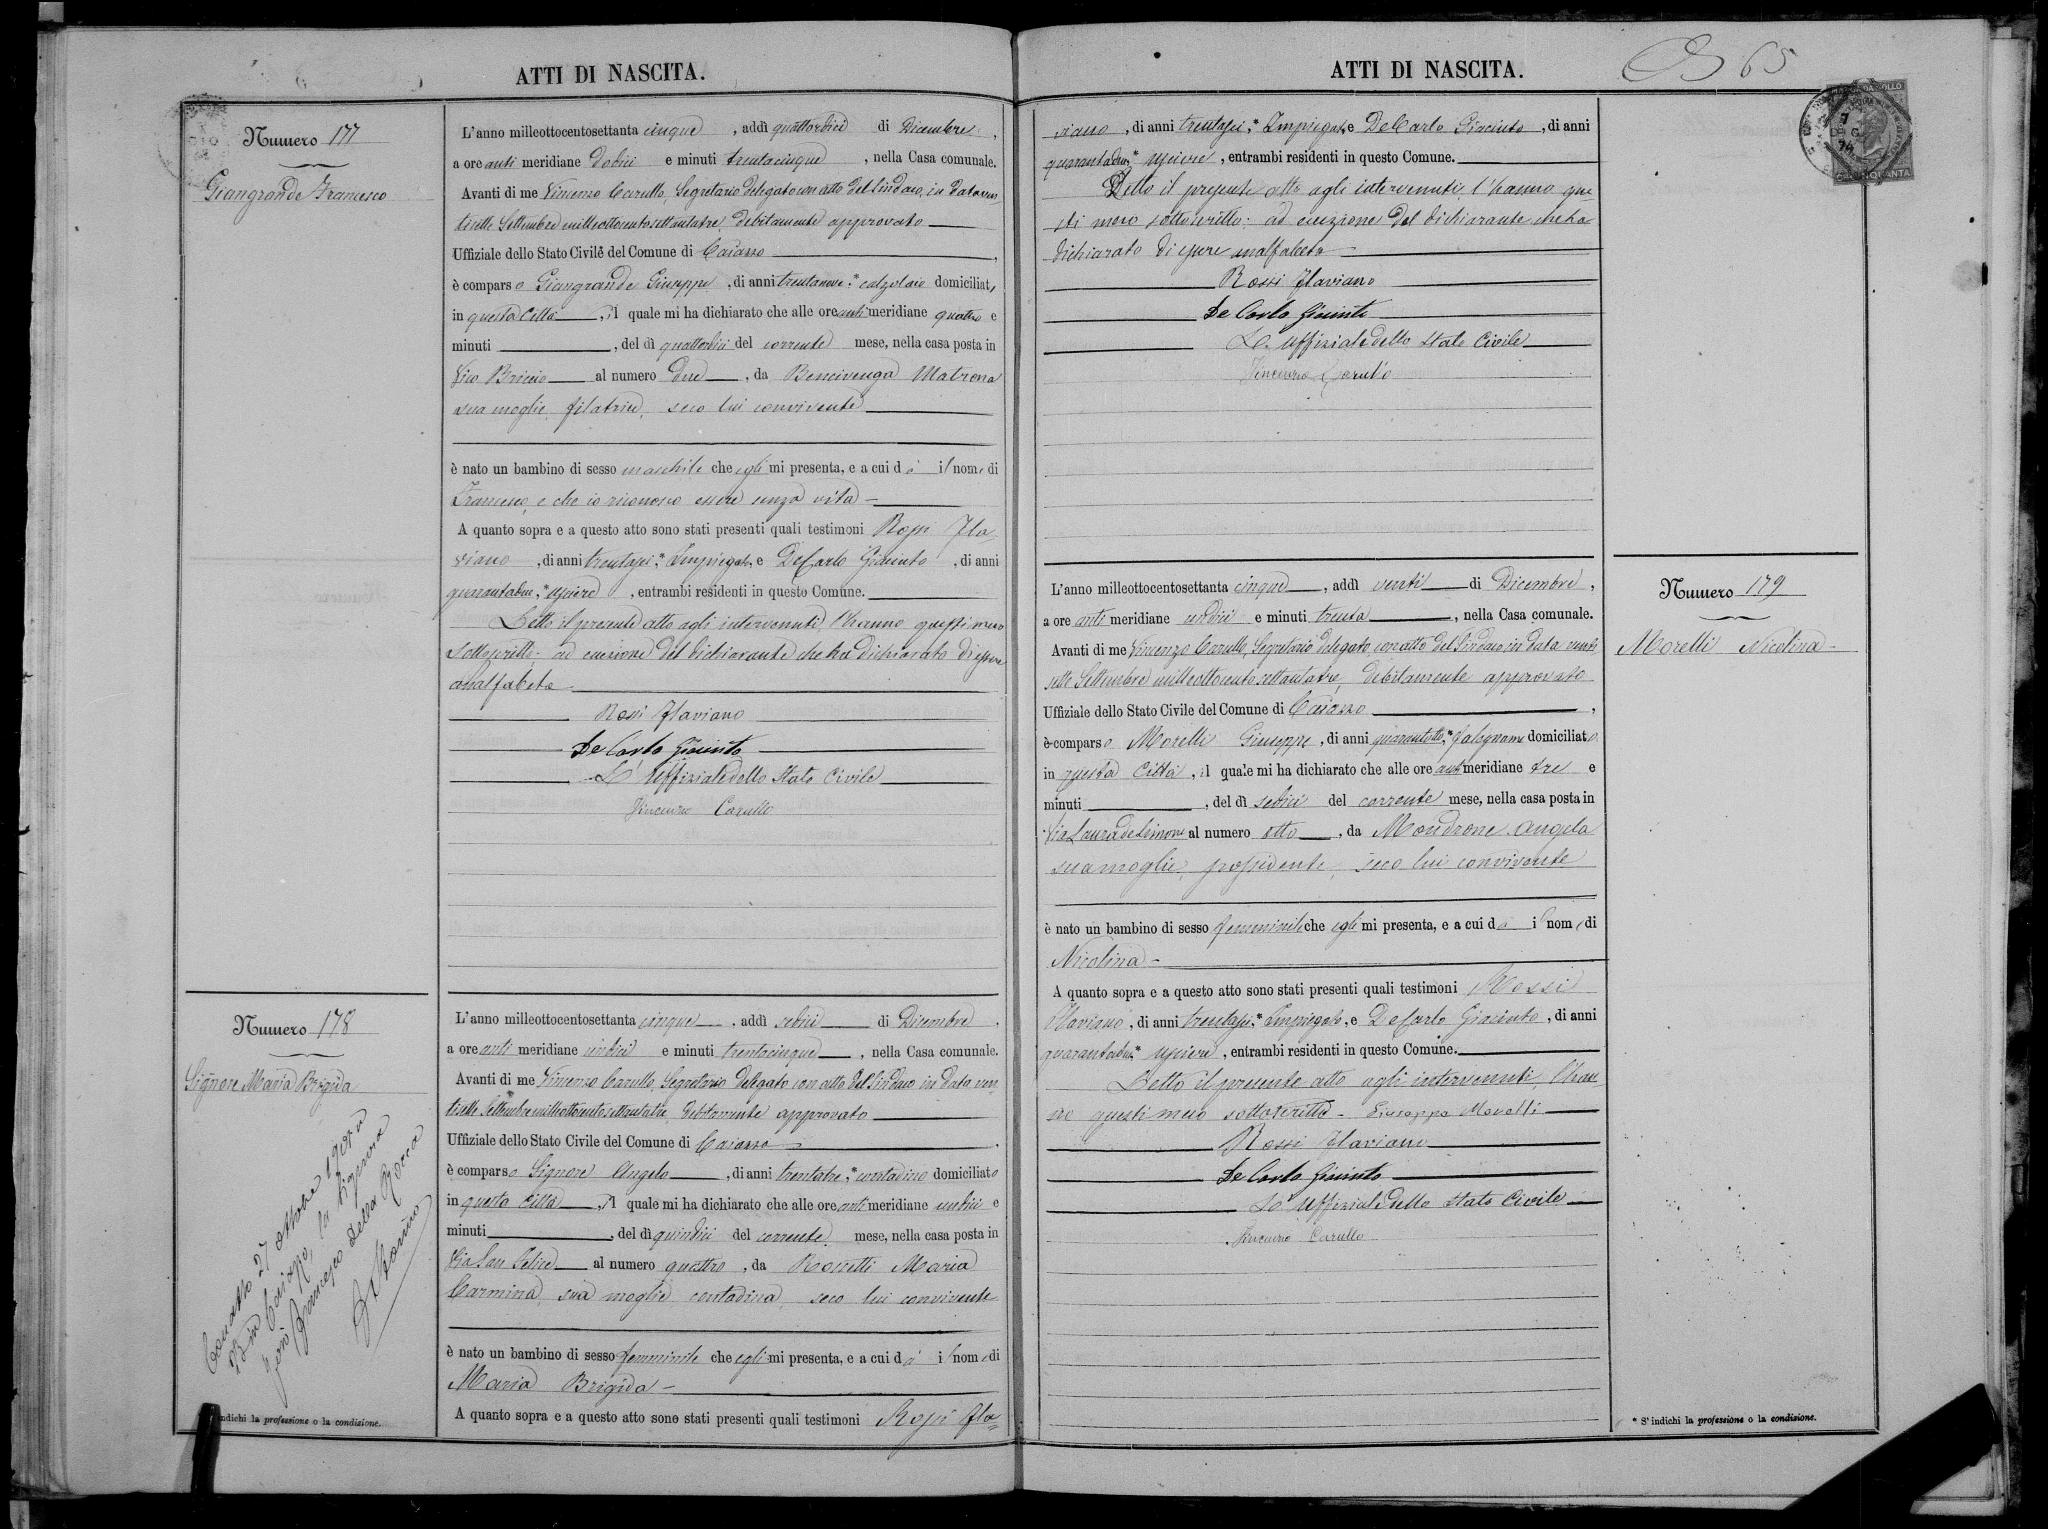 ATTI DI NASCITA.
Numero 177
Giangrande Francesco
L'anno milleottocentosettanta cinque, addì quattordici di Dicembre,
a ore anti meridiane dodici e minuti trentacinque, nella Casa comunale.
Avanti di me Vincenzo Carullo, Segretario delegato con atto del Sindaco, in data ven
tisette Settembre milleottocentosettantatre, debitamente approvato
Uffiziale dello Stato Civile del Comune di Caiazzo,
è comparso Giangrande Giuseppe, di anni trentanove,* calzolaio domiciliato
in questa Città, il quale mi ha dichiarato che alle ore anti meridiane quattro e
minuti, del dì quattordici del corrente mese, nella casa posta in
Vico Briccio al numero due, da Bencivenga Matrona
sua moglie, filatrice, seco lui convivente
è nato un bambino di sesso maschile che egli mi presenta, e a cui dà il nome di
Francesco, e che io riconosco essere senza vita
A quanto sopra e a questo atto sono stati presenti quali testimoni Rossi Fla-
viano, di anni trentasei,* Impiegato, e De Carlo Giacinto, di anni
quarantadue,* usciere, entrambi residenti in questo Comune.
Letto il presente atto agli intervenuti, l'hanno questi meco
sottoscritto, ad eccezione del dichiarante che ha dichiarato di essere
analfabeta
Rossi Flaviano
De Carlo Giacinto
L'Uffiziale dello Stato Civile
Vincenzo Carullo
Numero 178
Signore Maria Brigida
Contratto 27 ottobre 1902
in Caiazzo, la Signora
Francesco della Rocca
L'anno milleottocentosettanta cinque, addì sedici di Dicembre,
a ore anti meridiane undici e minuti trentacinque, nella Casa comunale.
Avanti di me Vincenzo Carullo, Segretario delegato con atto del Sindaco in data ven
tisette Settembre milleottocentosettantatre, debitamente approvato
Uffiziale dello Stato Civile del Comune di Caiazzo,
è comparso Signore Angelo, di anni trentatre,* contadino domiciliato
in questa Città, il quale mi ha dichiarato che alle ore anti meridiane undici e
minuti, del dì quindici del corrente mese, nella casa posta in
Via San Felice al numero quattro, da Rossetti Maria
Carmina, sua moglie contadina, seco lui convivente
è nato un bambino di sesso femminile che egli mi presenta, e a cui dà il nome di
Maria Brigida
A quanto sopra e a questo atto sono stati presenti quali testimoni Rossi Fla-
indichi la professione o la condizione.
ATTI DI NASCITA.
65
viano, di anni trentasei,* Impiegato, e De Carlo Giacinto, di anni
quarantadue,* usciere, entrambi residenti in questo Comune.
Letto il presente atto agli intervenuti, l'hanno que
sti meco sottoscritto: ad eccezione del dichiarante che ha
dichiarato di essere analfabeta
Rossi Flaviano
De Carlo Giacinto
L'Uffiziale dello Stato Civile
Vincenzo Carullo
L'anno milleottocentosettanta cinque, addì venti di Dicembre,
a ore anti meridiane undici e minuti trenta, nella Casa comunale.
Avanti di me Vincenzo Carullo, Segretario delegato, con atto del Sindaco in data venti
sette Settembre milleottocentosettantatre, debitamente approvato
Uffiziale dello Stato Civile del Comune di Caiazzo,
è comparso Morelli Giuseppe, di anni quarantotto,* falegname domiciliato
in questa Città, il quale mi ha dichiarato che alle ore anti meridiane tre e
minuti, del dì sedici del corrente mese, nella casa posta in
Via Laura de Simone al numero otto, da Mondrone Angela
sua moglie, possidente, seco lui convivente
è nato un bambino di sesso femminile che egli mi presenta, e a cui dà il nome di
Nicolina
A quanto sopra e a questo atto sono stati presenti quali testimoni Rossi
Flaviano, di anni trentasei,* Impiegato, e De Carlo Giacinto, di anni
quarantadue,* usciere, entrambi residenti in questo Comune.
Letto il presente atto agli intervenuti, l'han
no questi meco sottoscritto - Giuseppe Morelli
Rossi Flaviano
De Carlo Giacinto
L'Uffiziale dello Stato Civile
Vincenzo Carullo
Numero 179
Morelli Nicolina
* S'indichi la professione o la condizione.